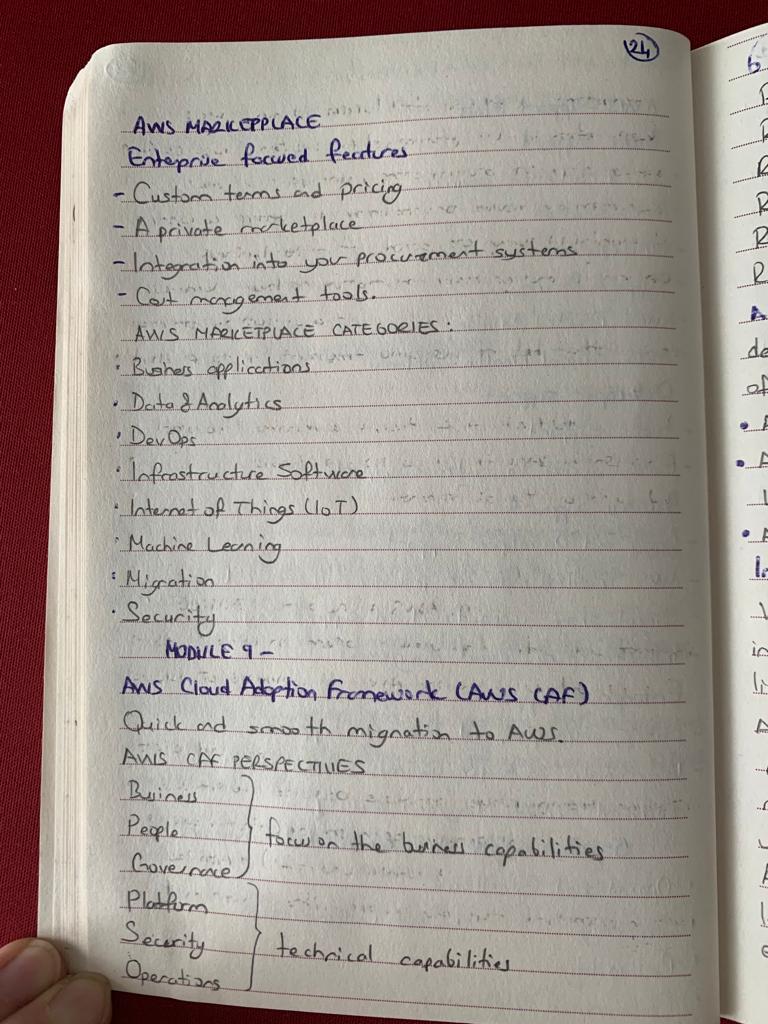 24
AWS MARKETPLACE
Enteprise focused features
- Custom terms and pricing
- A private marketplace
- Integration into your procurement systems
- Cost management tools.
AWS MARKETPLACE CATEGORIES:
· Business applications
· Data & Analytics
· DevOps
· Infrastructure Software
· Internet of Things (IoT)
· Machine Learning
· Migration
· Security
MODULE 9 -
AWS Cloud Adoption Framework (AWS CAF)
Quick and smooth migration to AWS.
AWS CAF PERSPECTIVES
Business
People
Governance
focus on the business capabilities
Platform
Security
Operations
technical capabilities